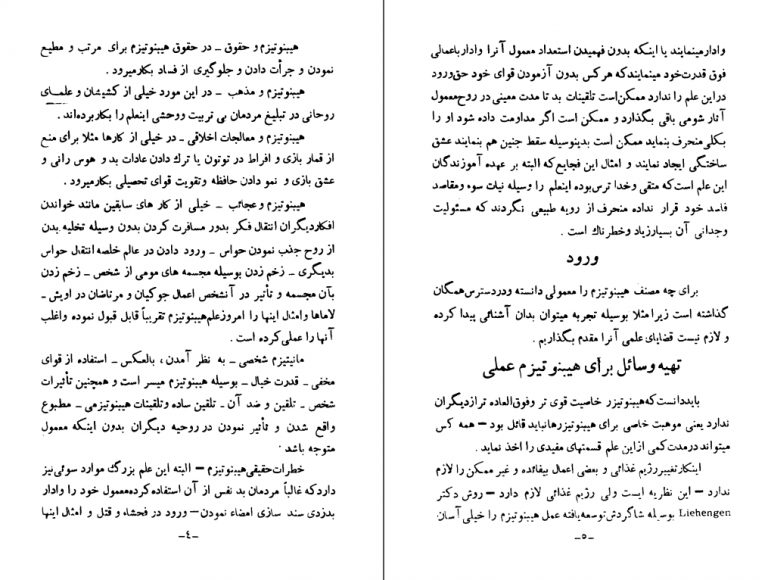 هیپنوتیزم و حقوق ــ در حقوق هیپنوتیزم برای مرتب و مطیع
نمودن و جرأت دادن و جلوگیری از فساد بکارمیرود.
هیپنوتیزم و مذهب ــ در این مورد خیلی از کشیشان و علمای
روحانی در تبلیغ مردمان بی تربیت ووحشی اینعلم را بکاربرده‌اند.
هیپنوتیزم و معالجات اخلاقی ــ در خیلی از کارها مثلا برای منع
از قمار بازی و افراط در توتون یا ترك دادن عادات بد و هوس رانی و
عشق بازی و نمو دادن حافظه وتقویت قوای تحصیلی بکارمیرود.
هیپنوتیزم وعجائب ــ خیلی از کار های سابقین مانند خواندن
افکاردیگران انتقال فکر بدور مسافرت کردن بدون وسیله تخلیه بدن
از روح جذب نمودن حواس ــ ورود دادن در عالم خلصه انتقال حواس
بدیگری ــ زخم زدن بوسیله مجسمه های مومی از شخص ــ زخم زدن
بآن مجسمه و تأثیر در آنشخص اعمال جوکیان و مرتاضان در اویش ــ
لاماها وامثال اینها را امروزعلم‌هیپنوتیزم تقریباً قابل قبول نموده واغلب
آنها را عملی‌کرده است.
مانیتیزم شخصی ــ به نظر آمدن، بالعکس ــ استفاده از قوای
مخفی ــ قدرت خیال ــ بوسیله هیپنوتیزم میسر است و همچنین تأثیرات
شخص ــ تلقین و ضد آن ــ تلقین ساده وتلقینات هیپنوتیزمی ــ مطبوع
واقع شدن و تأثیر نمودن در روحیه دیگران بدون اینکه معمول
متوجه باشد.
خطرات‌حقیقی‌هیپنوتیزم ــ البته این علم بزرگ موارد سوئی‌نیز
داردکه غالباً مردمان بد نفس از آن استفاده‌کرده‌معمول خود را وادار
بدزدی سند سازی امضاء نمودن ــ ورود در فحشاء و قتل و امثال اینها
-٤-
وادارمینمایند یا اینکه بدون فهمیدن استعداد معمول آنرا وادارباعمالی
فوق قدرت‌خود مینمایندکه هرکس بدون آزمودن قوای خود حق‌ورود
دراین علم را ندارد ممکن‌است تلقینات بد تا مدت معینی در روح‌معمول
آثار شومی باقی بگذارد و ممکن است اگر مداومت داده شود او را
بکلی‌منحرف بنماید ممکن است بدینوسیله سقط جنین هم بنمایند عشق
ساختگی ایجاد نمایند و امثال این فجایع‌که البته بر عهده آموزندگان
این علم است‌که متقی وخدا ترس‌بوده اینعلم را وسیله نیات سوء ومقاصد
فاسد خود قرار نداده منحرف از رویه طبیعی نگردند که مسئولیت
وجدانی آن بسیارزیاد وخطرناك است .
ورود
برای چه مصنف هیپنوتیزم را معمولی دانسته ودردسترس‌همگان
گذاشته است زیرا مثلا بوسیله تجربه میتوان بدان آشنائی پیدا کرده
و لازم نیست قضایای علمی آنرا مقدم بگذاریم .
تهیه وسائل برای هیپنوتیزم عملی
بایددانست‌که‌هیپنوتیزر خاصیت قوی تر وفوق‌العاده ترازدیگران
ندارد یعنی موهبت خاصی برای هیپنوتیزرهانباید قائل بود ــ همه کس
میتواند درمدت‌کمی ازاین علم قسمتهای مفیدی را اخذ نماید .
اینکارتغییررژیم غذائی و بعضی اعمال بیفائده و غیر ممکن را لازم
ندارد ــ این نظریه ایست ولی رژیم غذائی لازم دارد ــ روش دکتر
Liehengen بوسیله شاگردش توسعه‌یافته عمل هیپنوتیزم را خیلی آسان
-٥-